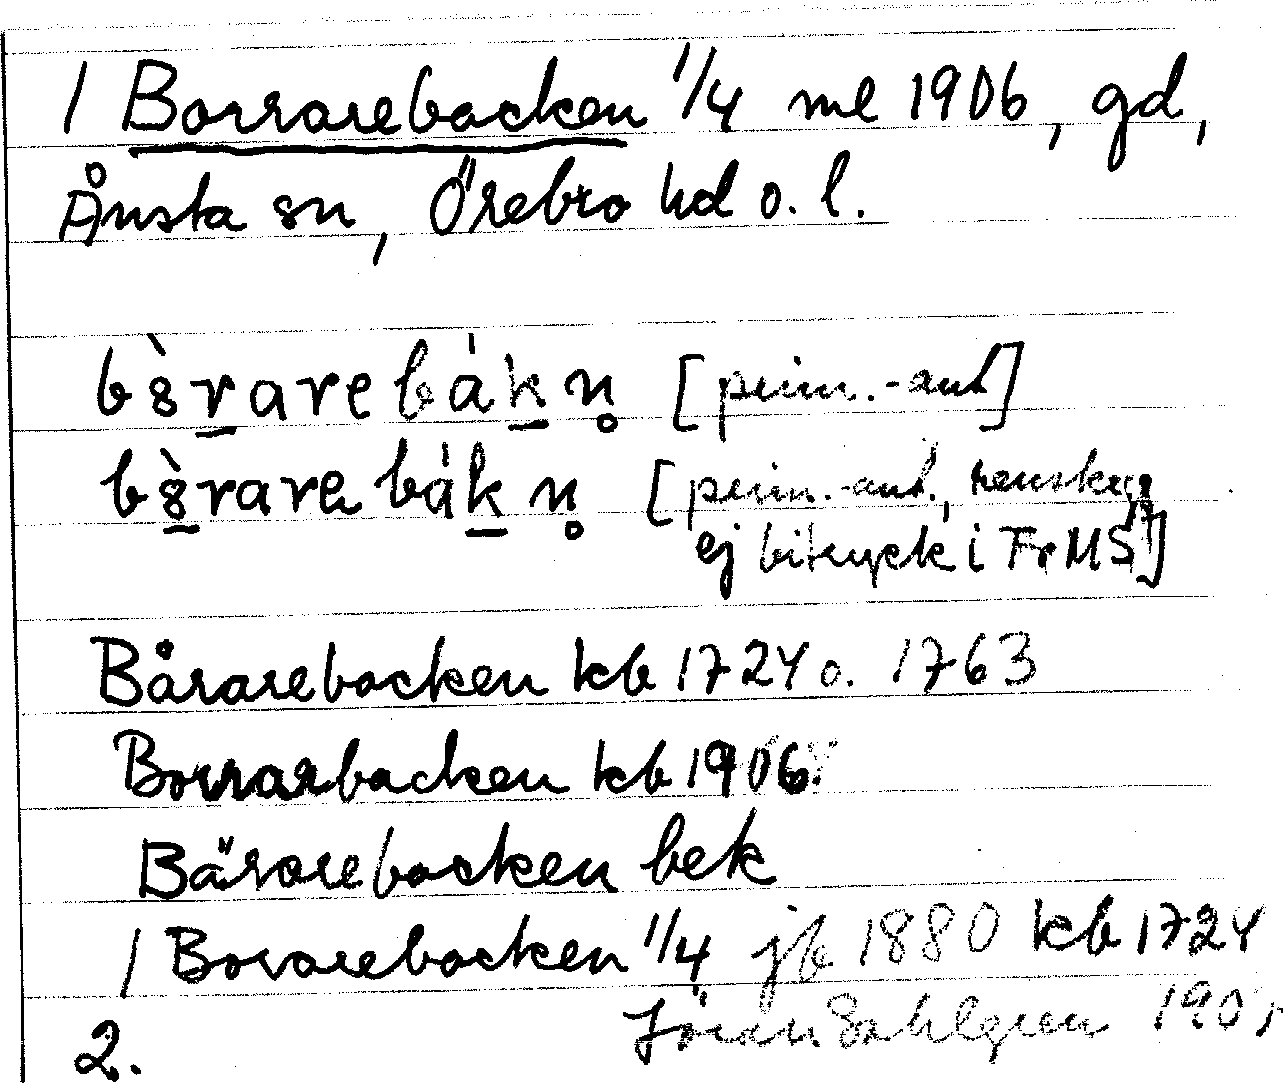 1 Borrarebacken 1/4 ml 1906, gd,
Ånsta sn, Örebro hd o. l.
bs̀rarebákn̥ [prim.-aut]
bs̀rarebákn̥ [prim.-aut.,
ej bitryck i Fr MS]
Bårarebacken kb 1724 o. 1763
Borrarbacken kb 1906.
Bärarebacken bek
1 Borarebacken 1/4 jb 1880 kb 1724
2. Jöran Sahlgren